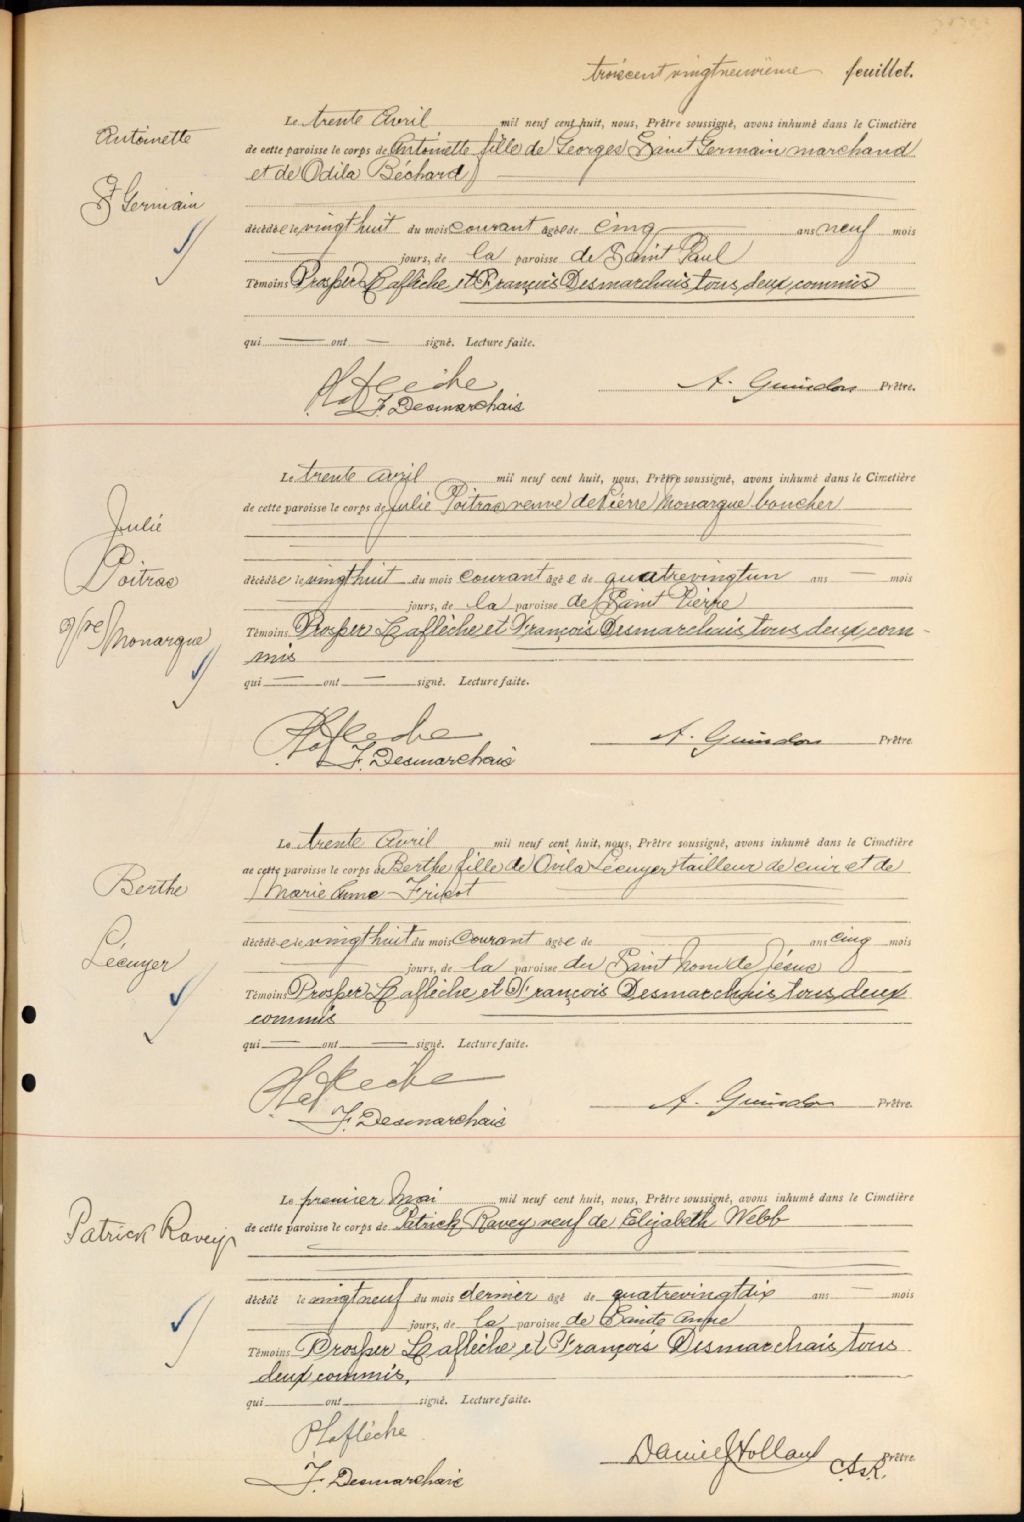 troiscent vingtneuvième feuillet.
Antoinette
St Germain
Le trente Avril mil neuf cent huit, nous, Prêtre soussigné, avons inhumé dans le Cimetière
de cette paroisse le corps de Antoinette fille de Georges Saint Germain marchand
et de Odila Béchard
décédée le vingthuit du mois courant âgée de cinq ans neuf mois
jours, de la paroisse de Saint Paul
Témoins Prosper Laflèche et François Desmarchais tous deux commis
qui — ont — signé. Lecture faite.
PLaflèche
F. Desmarchais
A. Guindon Prêtre.
Julie
Poitras
Monarque
Le trente avril mil neuf cent huit, nous, Prêtre soussigné, avons inhumé dans le Cimetière
de cette paroisse le corps de Julie Poitras veuve de Pierre Monarque boucher
décédée le vingthuit du mois courant âgée de quatrevingtun ans — mois
jours, de la paroisse de Saint Pierre
Témoins Prosper Laflèche et François Desmarchais tous deux com-
mis
qui — ont — signé. Lecture faite.
PLafleche
F. Desmarchais
A. Guindon Prêtre.
Berthe
Lécuyer
Le trente Avril mil neuf cent huit, nous, Prêtre soussigné, avons inhumé dans le Cimetière
de cette paroisse le corps de Berthe fille de Ovila Lécuyer tailleur de cuir et de
Marie Anne Fricot
décédée le vingthuit du mois courant âgée de ans cinq mois
jours, de la paroisse du Saint Nom de Jésus
Témoins Prosper Laflèche et François Desmarchais tous deux
commis
qui — ont — signé. Lecture faite.
PLaflèche
F. Desmarchais
A. Guindon Prêtre.
Patrick Ravey
Le premier Mai mil neuf cent huit, nous, Prêtre soussigné, avons inhumé dans le Cimetière
de cette paroisse le corps de Patrick Ravey veuf de Elizabeth Webb
décédé le vingtneuf du mois dernier âgé de quatrevingtdix ans — mois
jours, de la paroisse de Sainte Anne
Témoins Prosper Laflèche et François Desmarchais tous
deux commis,
qui ont signé. Lecture faite.
PLaflèche
F. Desmarchais
Daniel Holland C.Ss.R. Prêtre